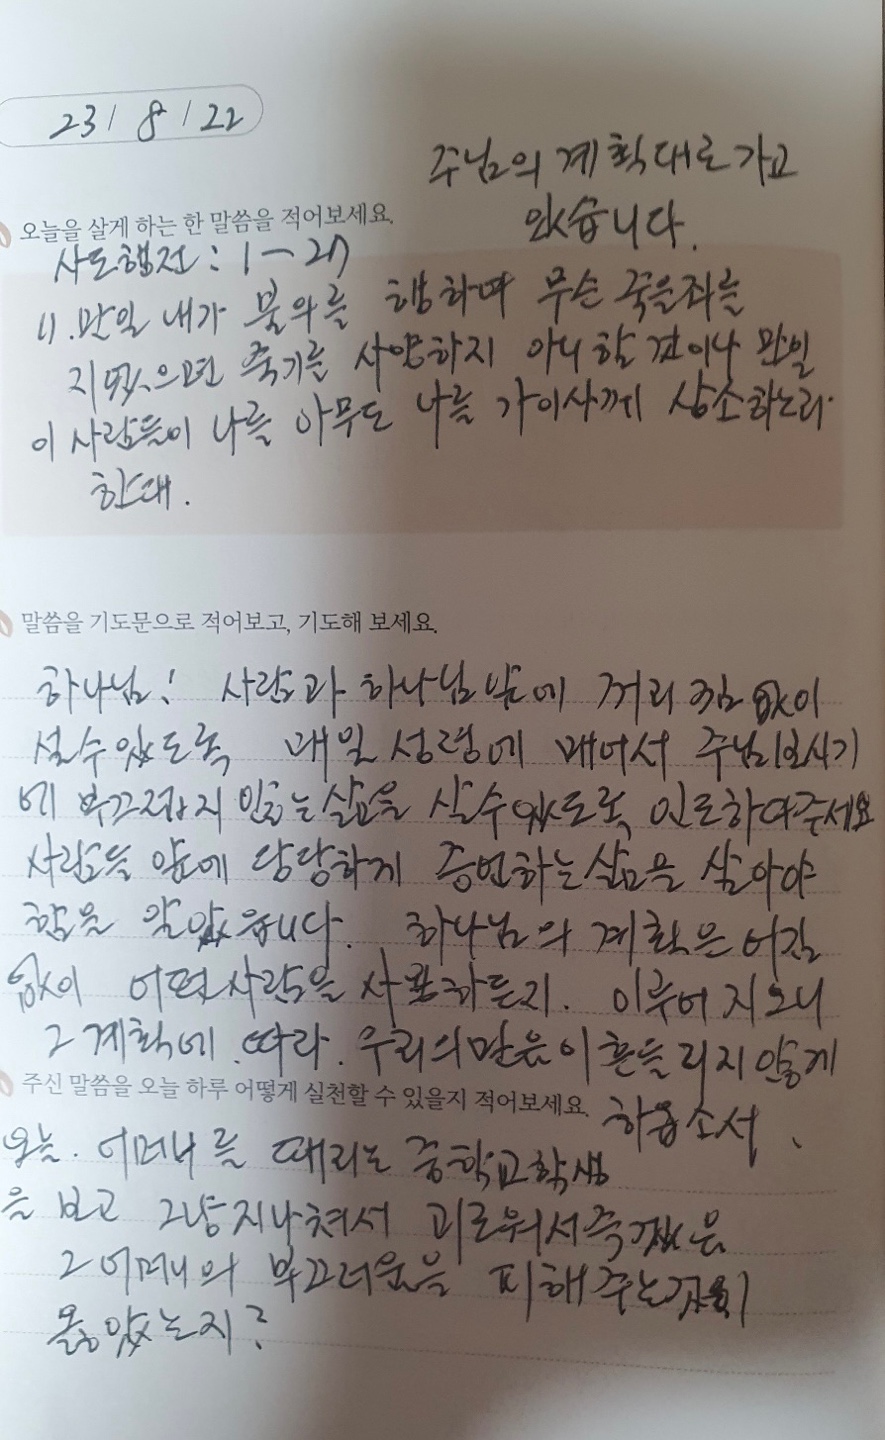 23 / 8 / 22
주님의 계획대로 가고
있습니다.
오늘을 살게 하는 한 말씀을 적어보세요.
사도행전 : 1 - 27
11. 만일 내가 불의를 행하며 무슨 죽을죄를
지었으면 죽기를 사양하지 아니할 것이나 만일
이 사람들이 나를 아무도 나를 가이사께 상소하노라
한대.
말씀을 기도문으로 적어보고, 기도해 보세요.
하나님! 사람과 하나님 앞에 꺼리낌 없이
설수 있도록 매일 성령에 매어서 주님 보시기
에 부끄럽지 않는 삶을 살수 있도록 인도하여주세요
사람들 앞에 당당하게 증언하는 삶을 살아야
함을 알았습니다. 하나님의 계획은 어김
없이 어떤 사람을 사용하든지. 이루어 지오니
그 계획에 따라. 우리의 믿음이 흔들리지 않게
하옵소서.
주신 말씀을 오늘 하루 어떻게 실천할 수 있을지 적어보세요.
오늘. 어머니를 때리는 중학교학생
을 보고 그냥 지나쳐서 괴로워서
그 어머니의 부끄러움을 피해 주는것이
옳았는지?